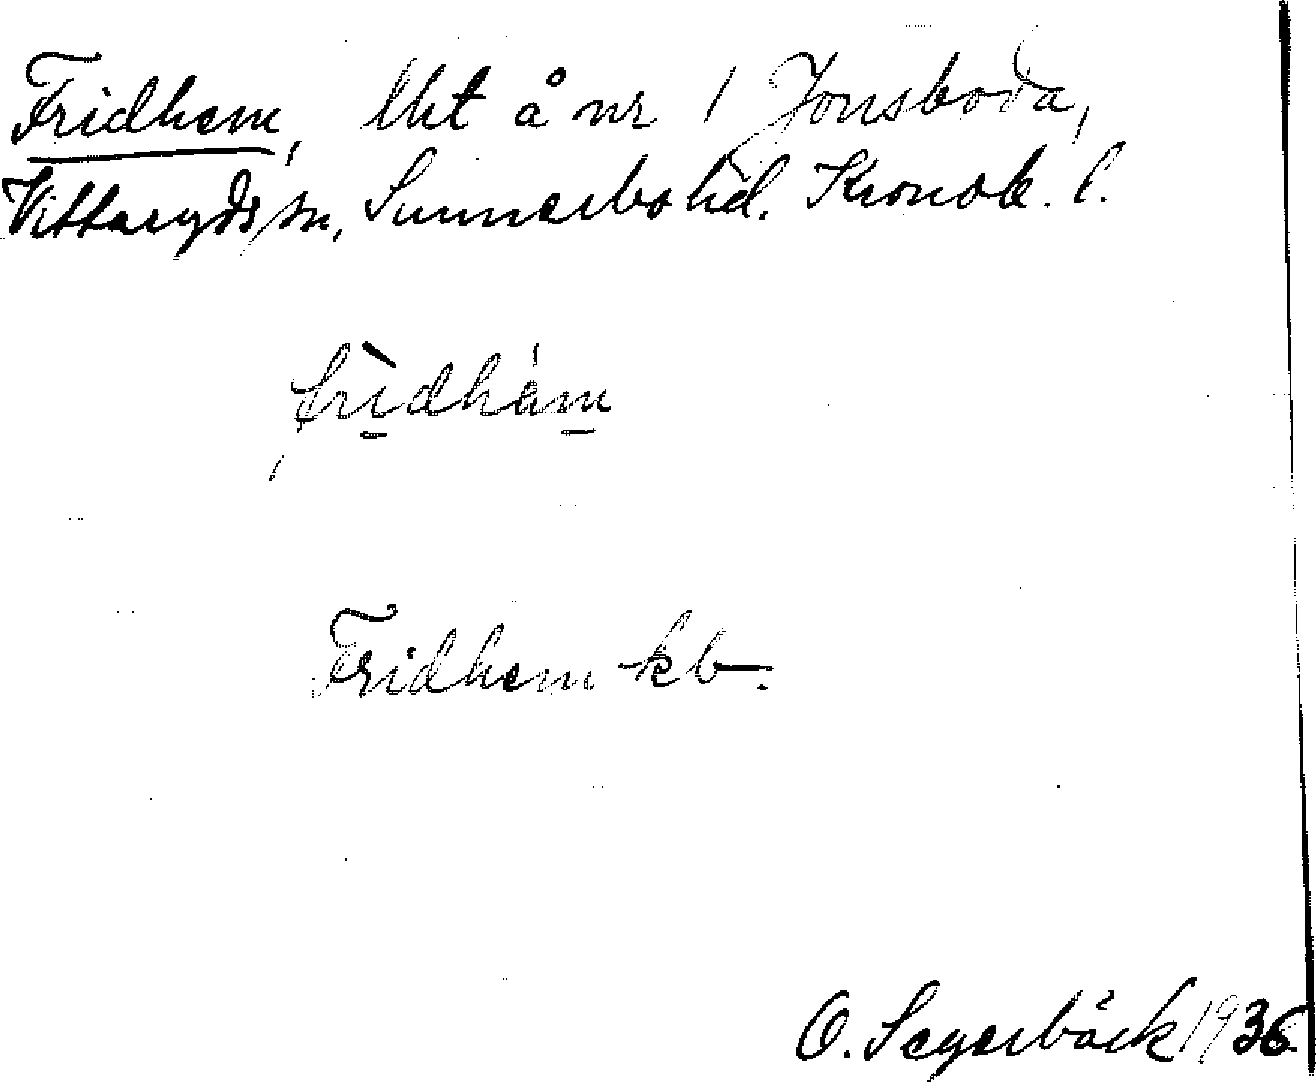 Fridhem, lht å nr 1 Jonsboda,
Vittaryds sn, Sunnerbo hd. Kronob. l.
frìdhä́m
Fridhem kb.
O. Segerbäck 1936